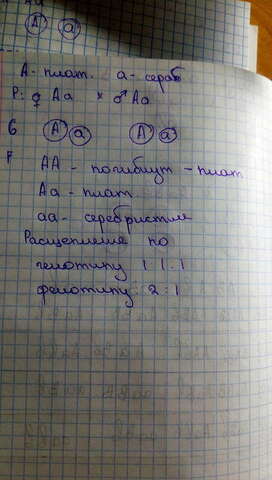 A a
A - плат. а - сераб
P: ♀ Aa × ♂ Aa
G A a A a
F AA - погибнут - плат
Aa - плат
аа - серебристые
Расщепление по
генотипу 1 1:1
фенотипу 2:1